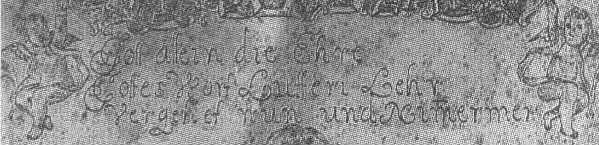 Got alein die Ehre
Gotes Wort Lehr
Vergehet nun und Nimermer